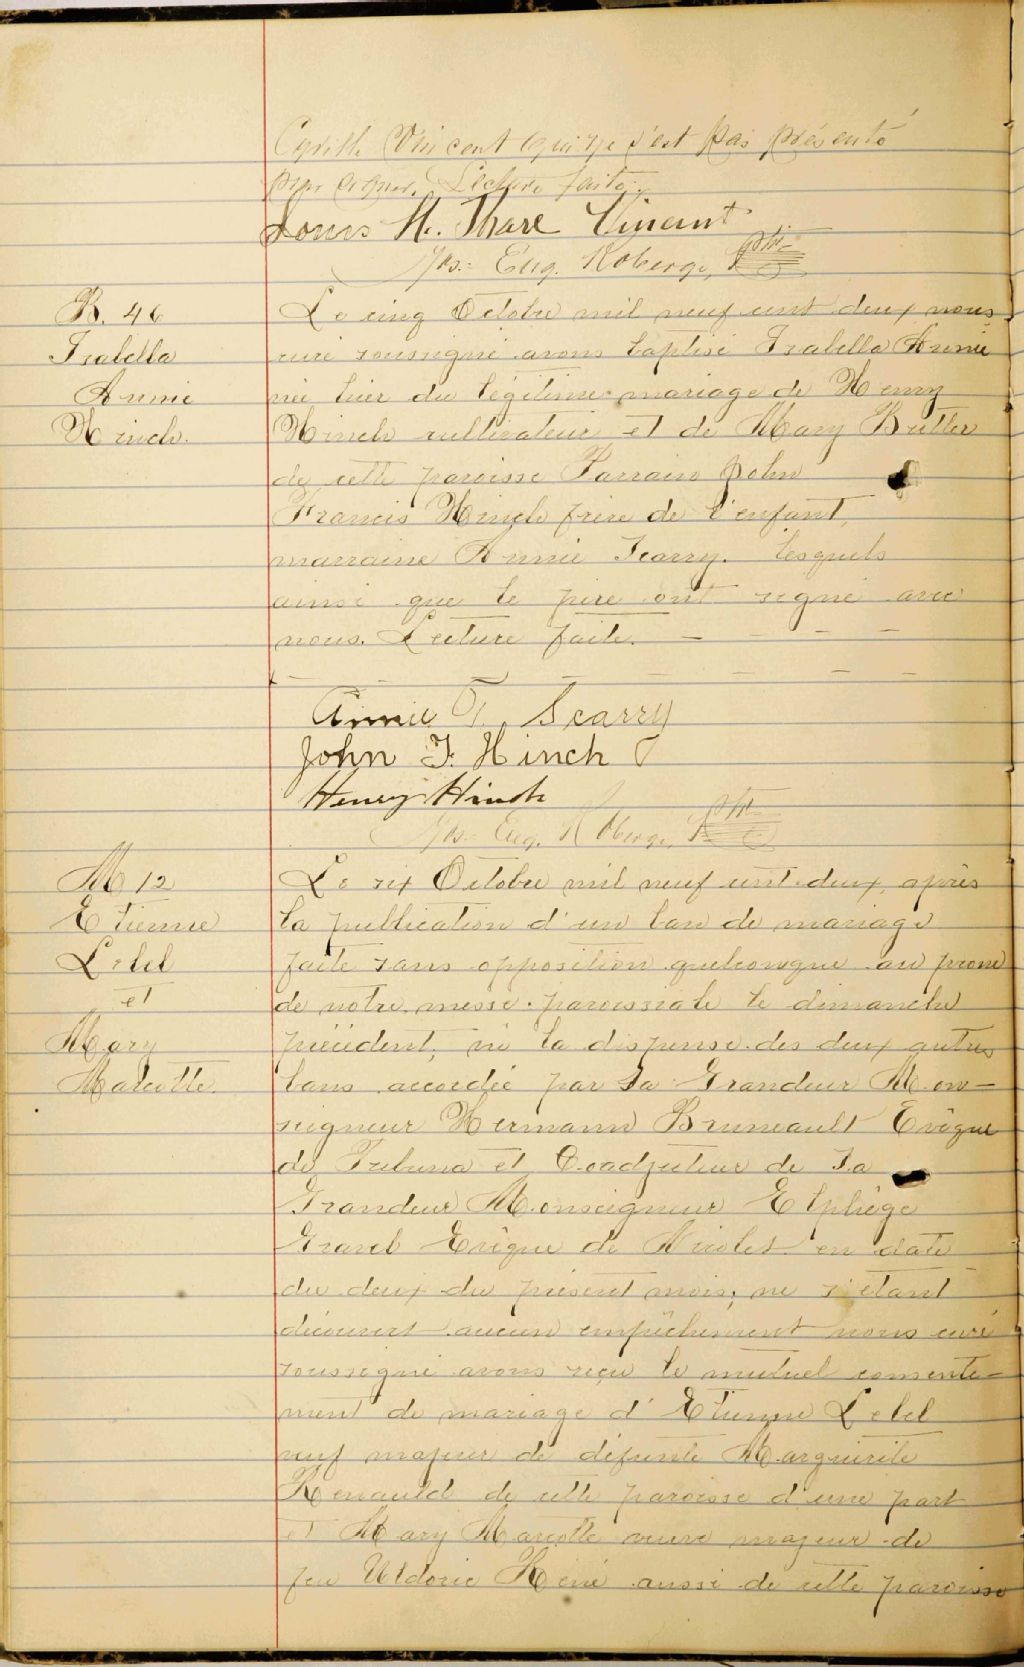 Cyrille Vincent qui ne s'est pas présenté
pour signer. Lecture faite.
Louis H. Thare Vincent
Jos. Eug. Roberge, Ptre
B. 46
Isabella
Annie
Hinch.
Le cinq Octobre mil neuf cent deux nous
curé soussigné avons baptisé Isabella Annie
née hier du légitime mariage de Henry
Hinch cultivateur et de Mary Butler
de cette paroisse Parrain John
Francis Hinch frère de l'enfant,
marraine Annie Scarry. lesquels
ainsi que le père ont signé avec
nous. Lecture faite. — — —
Annie T. Scarry
John F. Hinch
Henry Hinch
Jos. Eug. Roberge, Ptre
M 12
Etienne
Lebel
et
Mary
Marcotte.
Le six Octobre mil neuf cent deux, après
la publication d'un ban de mariage
faite sans opposition quelconque au prone
de notre messe paroissiale le dimanche
précédent, vu la dispense des deux autres
bans accordée par Sa Grandeur Mon-
seigneur Hermann Bruneault Evêque
de Tubuna et Coadjuteur de Sa
Grandeur Monseigneur Elphège
Gravel Evêque de Nicolet en date
du deux du présent mois; ne s'étant
découvert aucun empêchement nous curé
soussigné avons reçu le mutuel consente-
ment de mariage d'Etienne Lebel
veuf majeur de défunte Marguerite
Renauld de cette paroisse d'une part
et Mary Marcotte veuve majeur de
feu Uldoric Héné aussi de cette paroisse